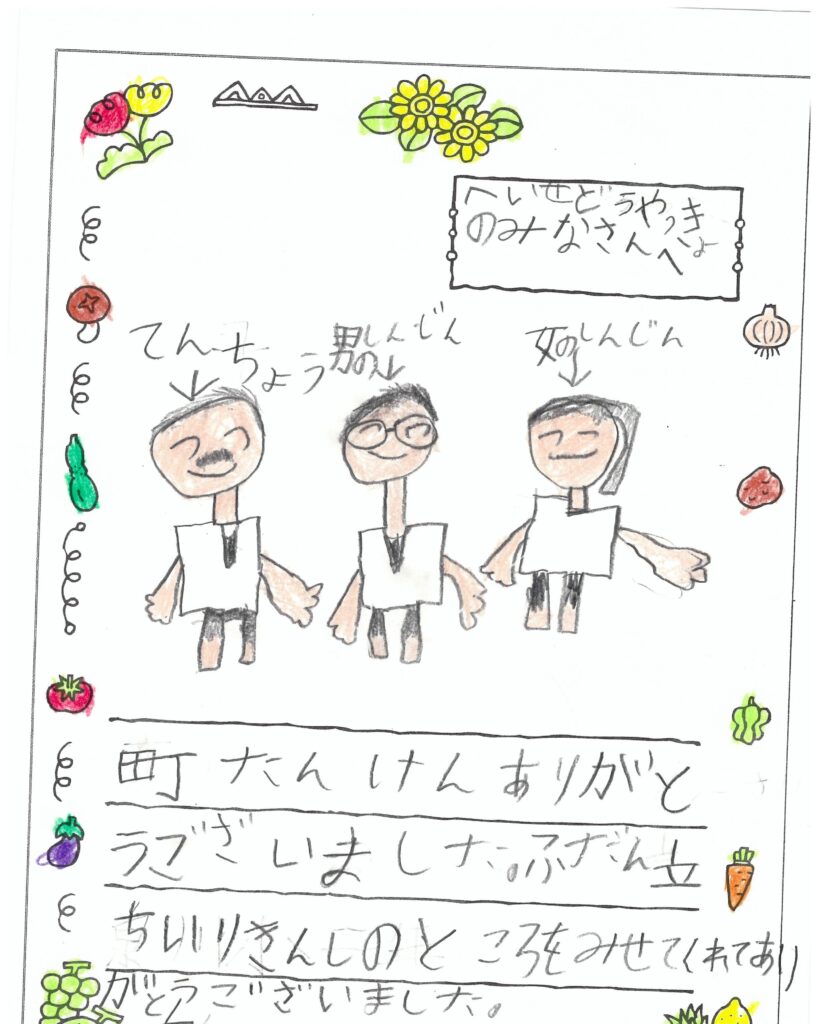 へいせどうやっき
のみなさんへょ
てんちょう
男のしんじん
女のしんじん
町たんけんありがと
うございました。ふだん立
ちいりきんしのところをみせてくれてあり
がとうございました。